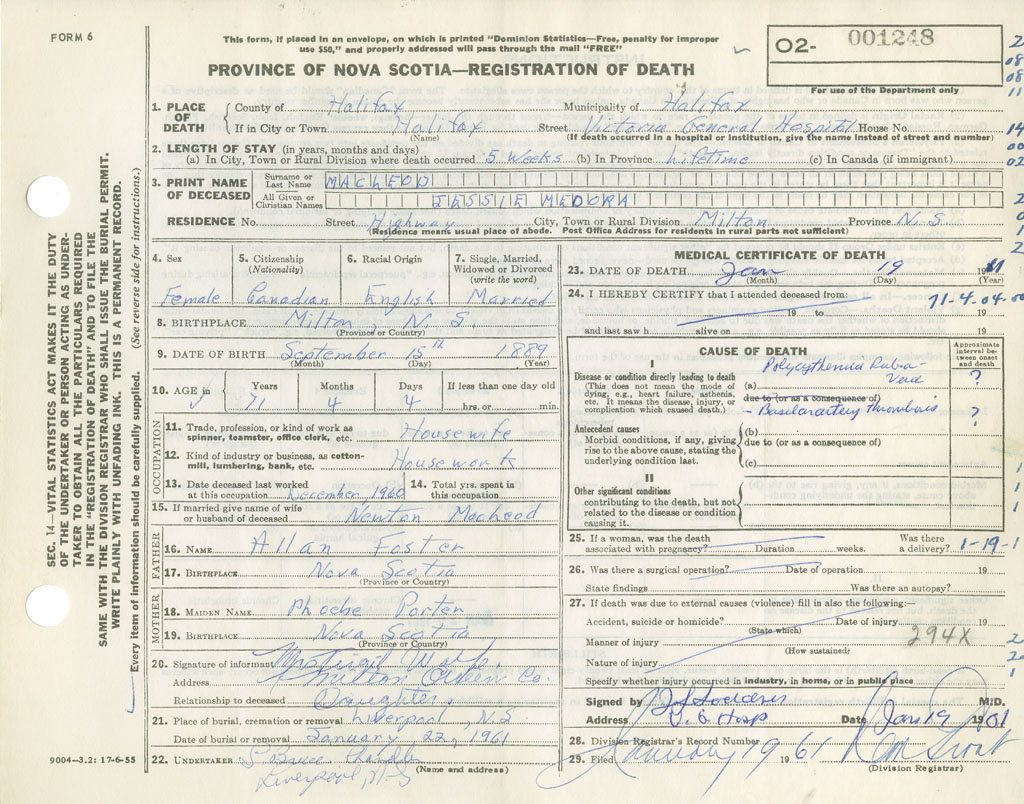 FORM 6
This form, if placed in an envelope, on which is printed "Dominion Statistics—Free, penalty for improper
use $50," and properly addressed will pass through the mail "FREE"
O2- 001248
PROVINCE OF NOVA SCOTIA—REGISTRATION OF DEATH
For use of the Department only
1. PLACE OF DEATH County of Halifax Municipality of Halifax
If in City or Town Halifax Street Victoria General Hospital House No.
(Name) (If death occurred in a hospital or institution, give the name instead of street and number)
2. LENGTH OF STAY (in years, months and days)
(a) In City, Town or Rural Division where death occurred 5 Weeks (b) In Province Lifetime (c) In Canada (if immigrant)
3. PRINT NAME OF DECEASED Surname or Last Name MACLEOD
All Given or Christian Names JESSIE MEDORA
RESIDENCE No. Street Highway City, Town or Rural Division Milton Province N.S.
(Residence means usual place of abode. Post Office Address for residents in rural parts not sufficient)
4. Sex 5. Citizenship (Nationality) 6. Racial Origin 7. Single, Married, Widowed or Divorced (write the word)
Female Canadian English Married
8. BIRTHPLACE Milton, N.S.
(Province or Country)
9. DATE OF BIRTH September 15th 1889
(Month) (Day) (Year)
10. AGE in Years Months Days If less than one day old
71 4 4 hrs. or min.
OCCUPATION
11. Trade, profession, or kind of work as
spinner, teamster, office clerk, etc. Housewife
12. Kind of industry or business, as cotton-
mill, lumbering, bank, etc. Housework
13. Date deceased last worked
at this occupation December, 1960
14. Total yrs. spent in
this occupation
15. If married give name of wife
or husband of deceased Newton Macleod
FATHER
16. NAME Allan Foster
17. BIRTHPLACE Nova Scotia
(Province or Country)
MOTHER
18. MAIDEN NAME Phoebe Porter
19. BIRTHPLACE Nova Scotia
(Province or Country)
20. Signature of informant Mrs
Address Milton Queen Co.
Relationship to deceased Daughter.
21. Place of burial, cremation or removal Liverpool, N.S
Date of burial or removal January 22, 1961
22. UNDERTAKER Bruce Chandler
Liverpool, N-S
(Name and address)
9004—3.2: 17-6-55
MEDICAL CERTIFICATE OF DEATH
23. DATE OF DEATH Jan 19 19
(Month) (Day) (Year)
24. I HEREBY CERTIFY that I attended deceased from:
71-4-04-
19 to 19
and last saw h alive on 19
CAUSE OF DEATH
Approximate interval between onset and death
I
Disease or condition directly leading to death
(This does not mean the mode of
dying, e.g., heart failure, asthenia,
etc. It means the disease, injury, or
complication which caused death.)
(a) Rubra Vera ?
due to (or as a consequence of)
- Basilar artery thrombosis ?
Antecedent causes
Morbid conditions, if any, giving
rise to the above cause, stating the
underlying condition last.
(b)
due to (or as a consequence of)
(c)
II
Other significant conditions
contributing to the death, but not
related to the disease or condition
causing it.
25. If a woman, was the death
associated with pregnancy? Duration weeks. Was there a delivery? 1-19-1
26. Was there a surgical operation? Date of operation 19
State findings Was there an autopsy?
27. If death was due to external causes (violence) fill in also the following:—
Accident, suicide or homicide? Date of injury 19
(State which)
Manner of injury 294X
(How sustained)
Nature of injury
Specify whether injury occurred in industry, in home, or in public place
Signed by M.D.
Address V.G. Hosp Date Jan 19 1961
28. Division Registrar's Record Number
29. Filed January 19 1961
(Division Registrar)
SEC. 14—VITAL STATISTICS ACT MAKES IT THE DUTY
OF THE UNDERTAKER OR PERSON ACTING AS UNDER-
TAKER TO OBTAIN ALL THE PARTICULARS REQUIRED
IN THE "REGISTRATION OF DEATH" AND TO FILE THE
SAME WITH THE DIVISION REGISTRAR WHO SHALL ISSUE THE BURIAL PERMIT.
WRITE PLAINLY WITH UNFADING INK. THIS IS A PERMANENT RECORD.
Every item of information should be carefully supplied. (See reverse side for instructions.)